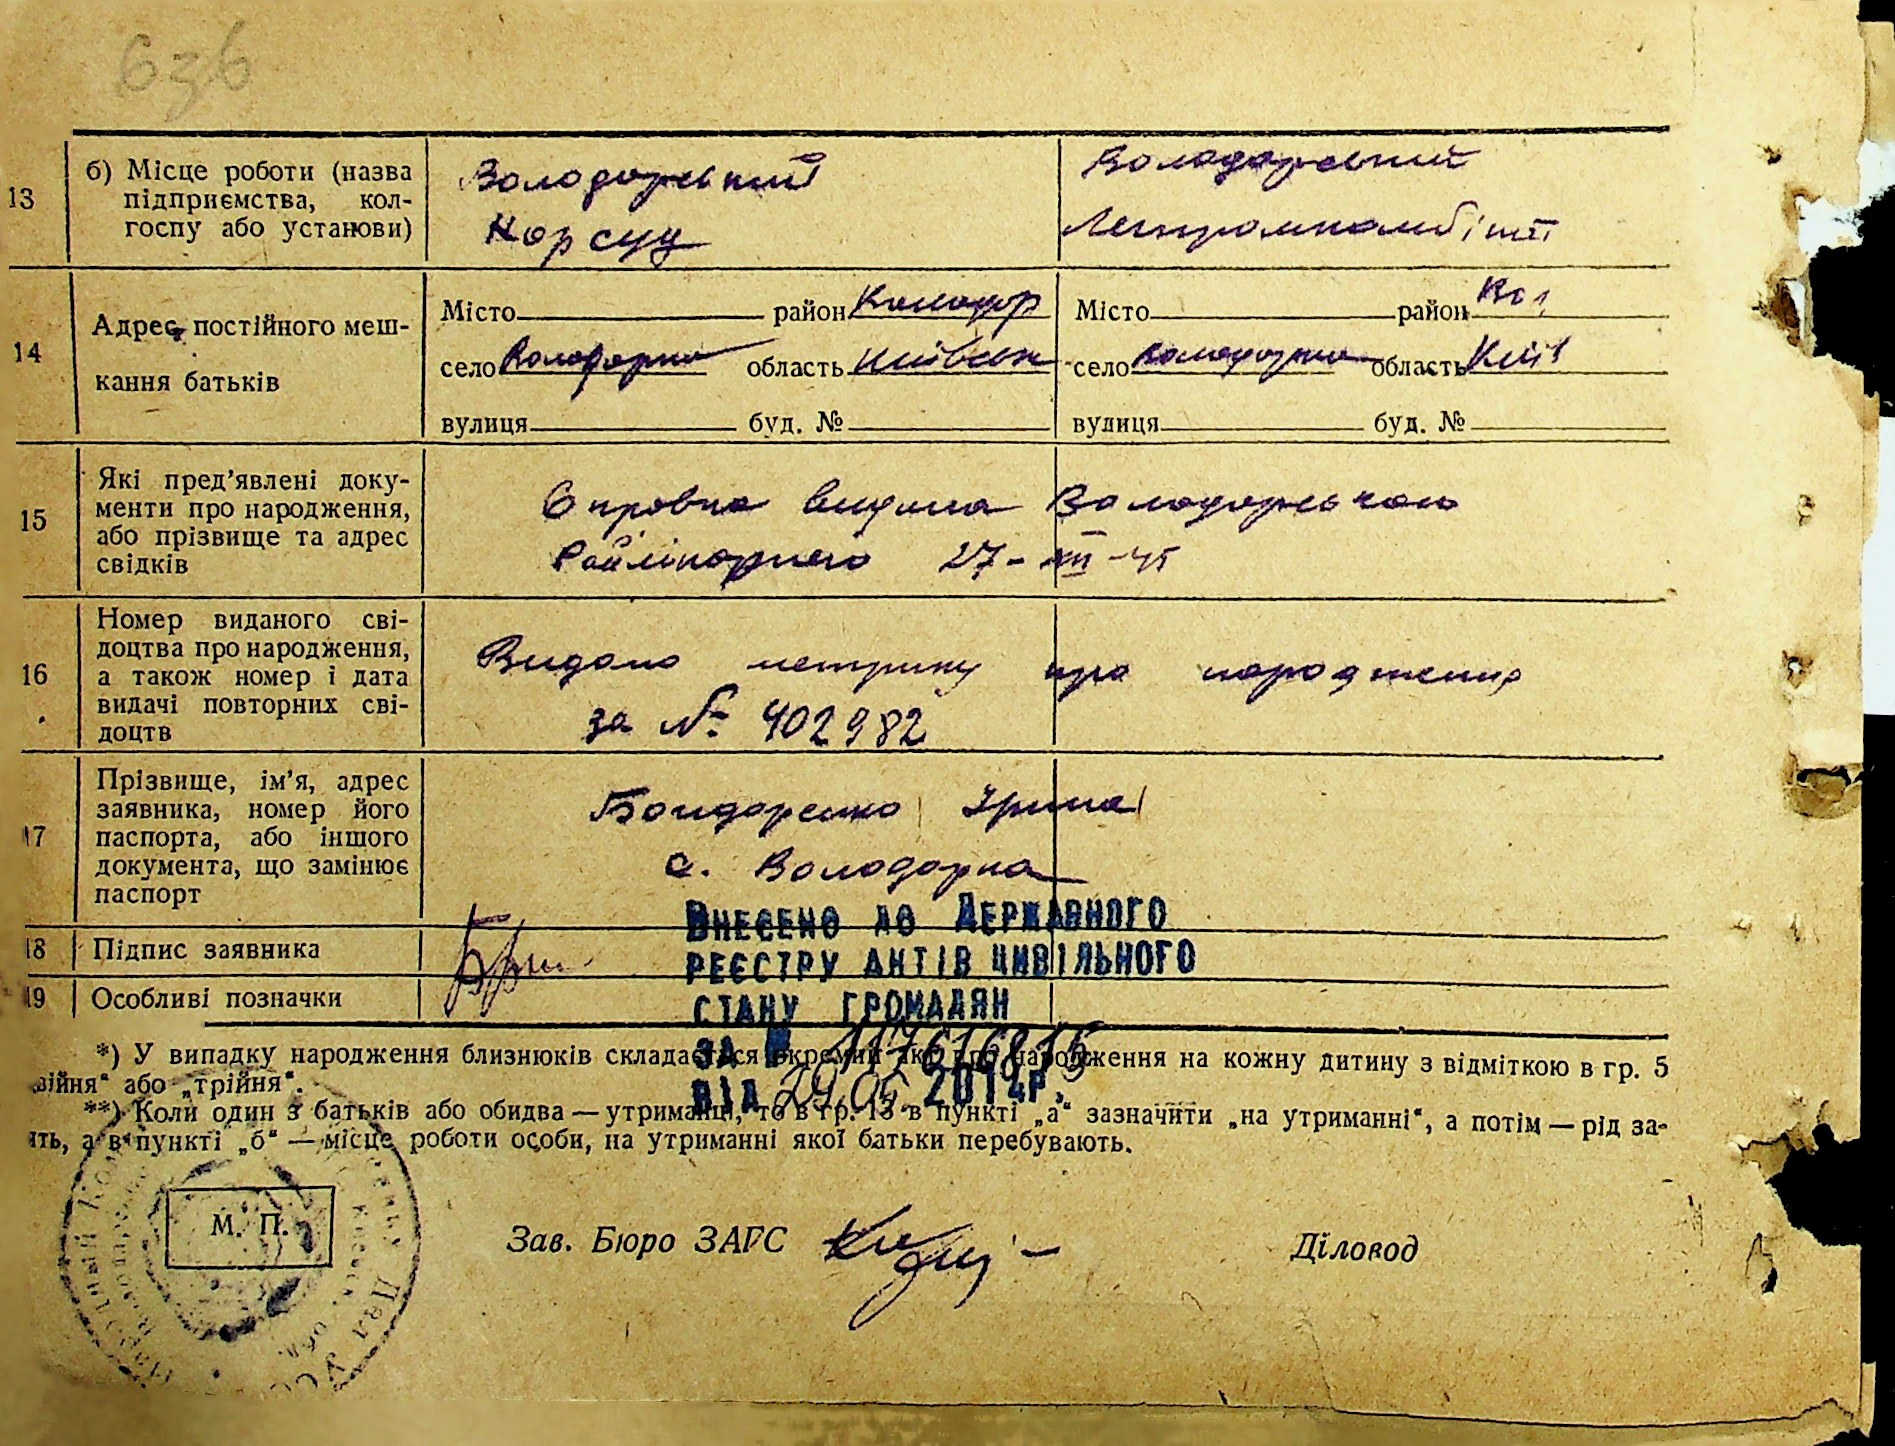 636
13 б) Місце роботи (назва підприємства, колгоспу або установи)
Володарський
Нарсуд
Володарський
Легпромкомбінат
14 Адрес постійного мешкання батьків
Місто район Володар
село Володарка область Київськ
вулиця буд. №
Місто район Вол.
село Володарка область Київ
вулиця буд. №
15 Які пред’явлені документи про народження, або прізвище та адрес свідків
Справка видана Володарською
Райлікарнею 27-XII-45
16 Номер виданого свідоцтва про народження, а також номер і дата видачі повторних свідоцтв
Видано метрику про народження
за № 402982
17 Прізвище, ім’я, адрес заявника, номер його паспорта, або іншого документа, що замінює паспорт
Бондаренко Ірина
с. Володарка
18 Підпис заявника
19 Особливі позначки
Внесено до Державного
реєстру актів цивільного
стану громадян
за № 117616815
від 29.05 2014р.
*) У випадку народження близнюків складається окремий акт про народження на кожну дитину з відміткою в гр. 5
„двійня“ або „трійня“.
**) Коли один з батьків або обидва — утриманці, то в гр. 13 в пункті „а“ зазначити „на утриманні“, а потім — рід за-
нять, а в пункті „б“ — місце роботи особи, на утриманні якої батьки перебувають.
М. П.
Зав. Бюро ЗАГС
Діловод